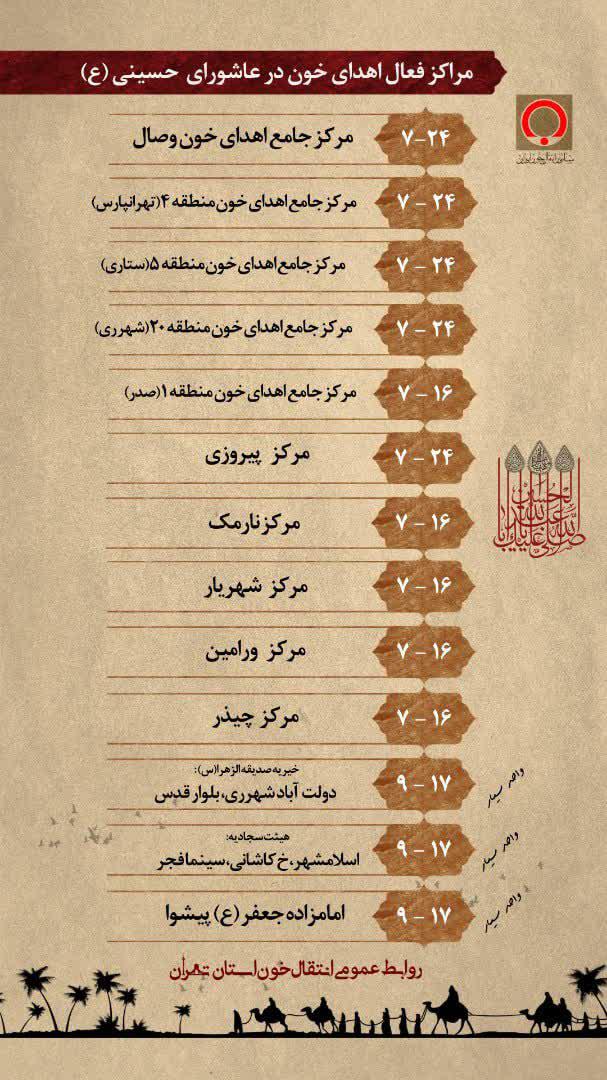 مراکز فعال اهدای خون در عاشورای حسینی (ع)
سازمان انتقال خون ایران
۷-۲۴ مرکز جامع اهدای خون وصال
۷ - ۲۴ مرکز جامع اهدای خون منطقه ۴(تهرانپارس)
۷ - ۲۴ مرکز جامع اهدای خون منطقه ۵(ستاری)
۷ - ۲۴ مرکز جامع اهدای خون منطقه ۲۰(شهرری)
۷ - ۱۶ مرکز جامع اهدای خون منطقه ۱(صدر)
۷ - ۲۴ مرکز پیروزی
۷ - ۱۶ مرکز نارمک
۷ - ۱۶ مرکز شهریار
۷ - ۱۶ مرکز ورامین
۷ - ۱۶ مرکز چیذر
خیریه صدیقه الزهرا(س):
واحد سیار ۹ - ۱۷ دولت آباد شهرری، بلوار قدس
هیئت سجادیه:
واحد سیار ۹ - ۱۷ اسلامشهر، خ کاشانی، سینما فجر
واحد سیار ۹ - ۱۷ امامزاده جعفر (ع) پیشوا
صلی الله علیک یا ابا عبدالله الحسین
روابط عمومی انتقال خون استان تهران